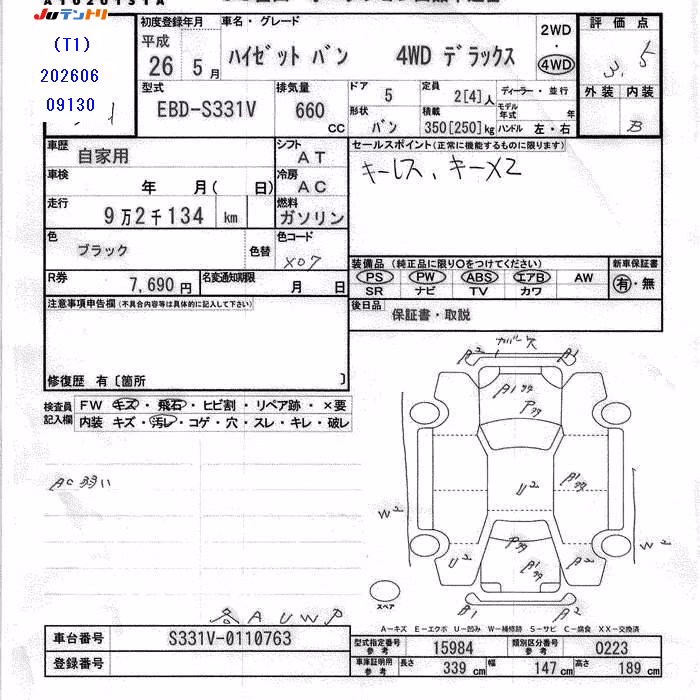 A10201S1A
JUテントリ
(T1)
202606
09130
初度登録年月
平成 26 5 月
車名・グレード
ハイゼット バン 4WD デラックス
2WD
・
4WD
評価点
3.5
外装 内装
B
型式
EBD-S331V
排気量
660 CC
ドア 5
形状 バン
定員 2[4] 人
積載 350[250] kg
ディーラー・並行
モデル年式 年
ハンドル 左・右
車歴 自家用
シフト AT
車検 年 月( 日)
冷房 AC
走行 9万2千134 km
燃料 ガソリン
色 ブラック 色替
色コード X07
R券 7,690 円
名変通知期限 月 日
セールスポイント(正常に機能するものに限ります)
キーレス、キーX2
装備品(純正品に限り○をつけてください)
PS PW ABS エアB AW
SR ナビ TV カワ
新車保証書
有・無
後日品
保証書・取説
注意事項申告欄(不具合内容等は具体的に記入して下さい)
修復歴 有〔箇所 〕
検査員記入欄
FW キズ・飛石・ヒビ割・リペア跡・×要
内装 キズ・汚レ・コゲ・穴・スレ・キレ・破レ
AC弱い
ガバース
A2 A1
A1 タタ
Pタタ
U2
A1 タタ
W2
W2
U2
Pタタ
A1 タタ
A2
スペア
A1 A2
各AUWP
A-キズ E-エクボ U-凹み W-補修跡 S-サビ C-腐食 XX-交換済
車台番号 S331V-0110763
登録番号
型式指定番号 参考 15984
類別区分番号 参考 0223
車庫証明用 参考 長さ 339 cm 幅 147 cm 高さ 189 cm